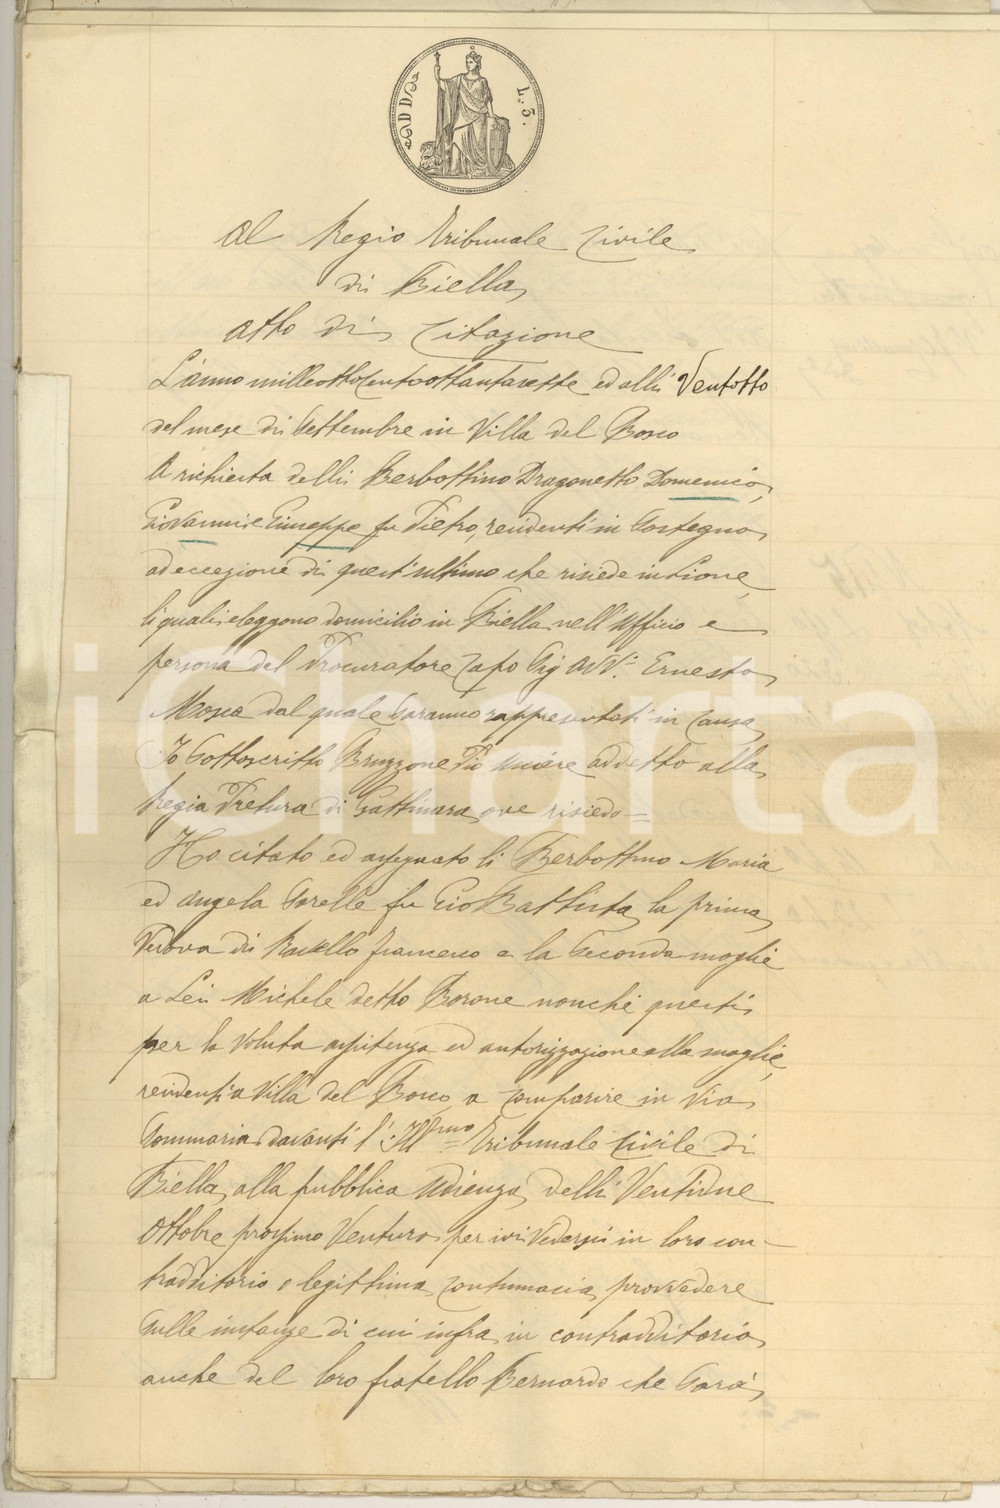 L. 3.
Al Regio Tribunale Civile
di Biella
Atto di Citazione
L'anno milleottocentoottantasette ed alli Ventotto
del mese di Settembre in Villa del Bosco
A richiesta delli Berbottino Dragonetto Domenico,
Giovanni e Giuseppe fu Pietro, residenti in Sostegno
ad eccezione di quest'ultimo che risiede in Lione,
li quali eleggono domicilio in Biella nell'Ufficio e
persona del Procuratore Capo Sig Avv. Ernesto
Mosca dal quale saranno rappresentati in Causa
Io Sottoscritto Bruzzone Pio Usciere addetto alla
Regia Pretura di Gattinara ove risiedo =
Ho citato ed assegnato li Berbottino Maria
ed Angela Sorelle fu Gio Battista, la prima
Vedova di Francesco e la Seconda moglie
a Michele detto Borone nonché questi
per la voluta assistenza ed autorizzazione alla moglie,
residenti a Villa del Bosco a Comparire in Via
Sommaria davanti l'Illmo Tribunale Civile di
Biella, alla pubblica Udienza delli Ventidue
Ottobre prossimo Venturo per ivi Vedersi in loro con-
tradditorio o legittima contumacia, provvedere
sulle instanze di cui infra in contradditorio
anche del loro fratello Bernardo che Sarà
iCharta